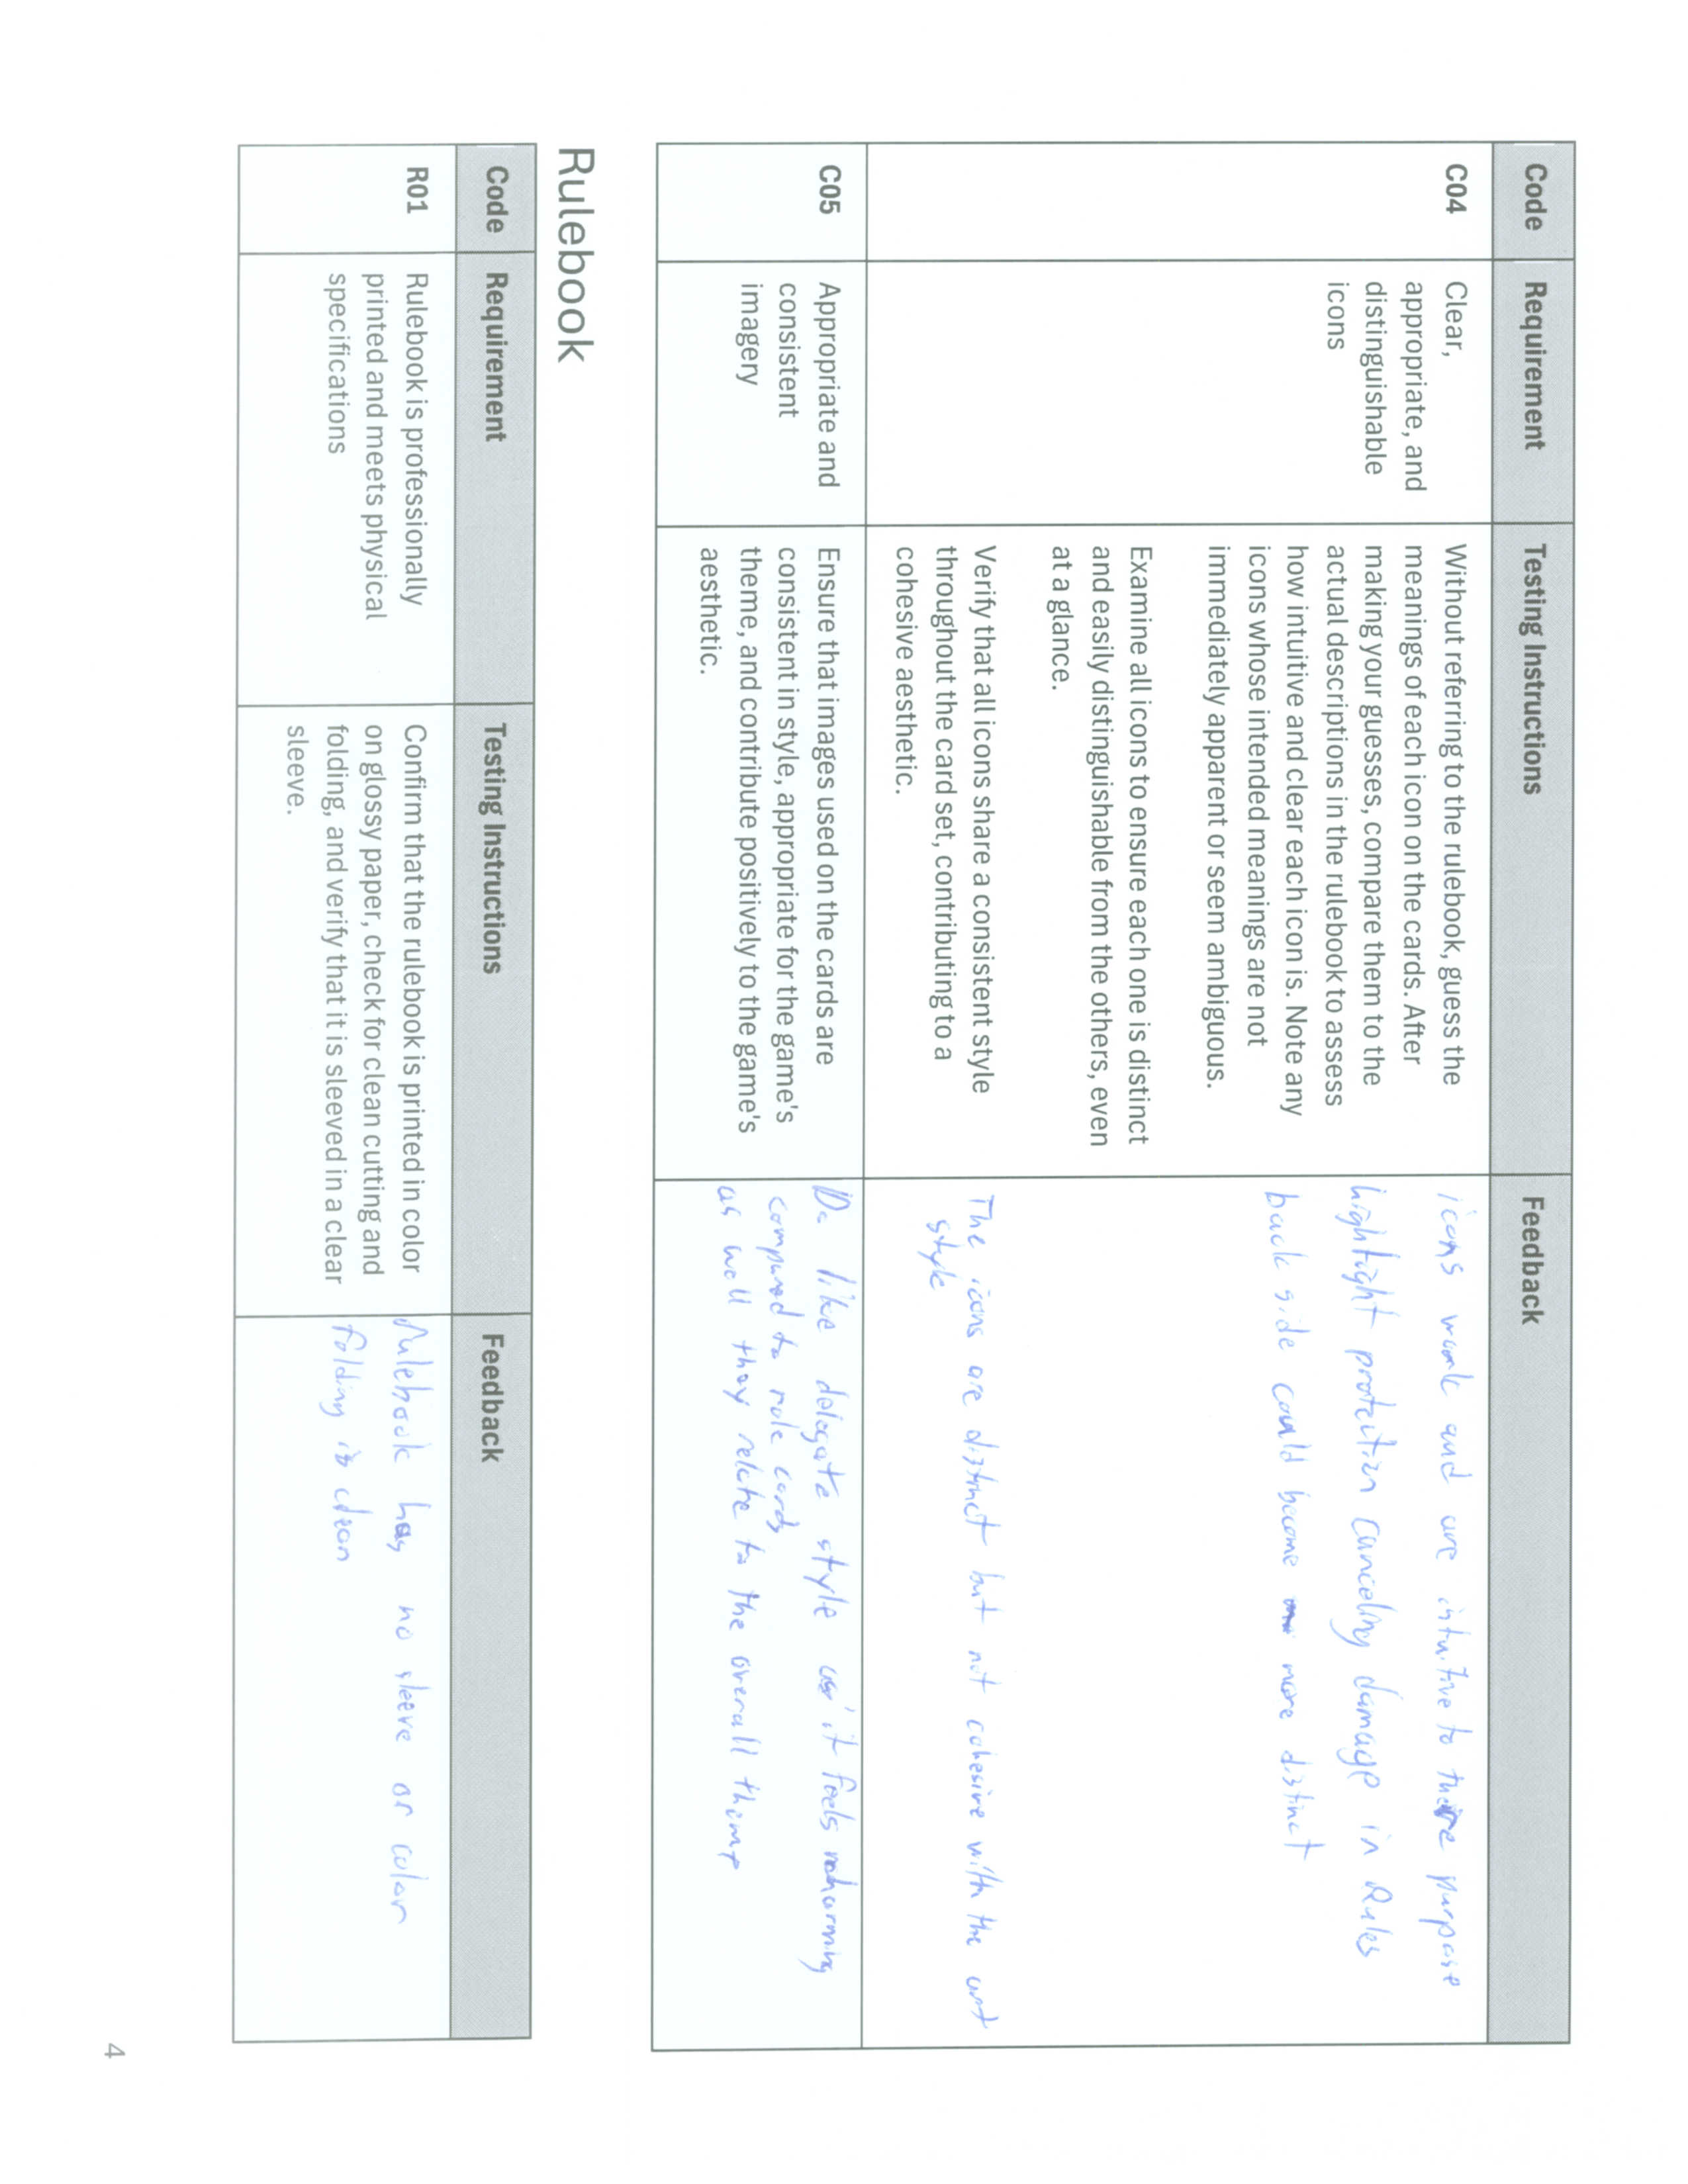 Code Requirement Testing Instructions Feedback
C04
Clear,
appropriate, and
distinguishable
icons
Without referring to the rulebook, guess the
meanings of each icon on the cards. After
making your guesses, compare them to the
actual descriptions in the rulebook to assess
how intuitive and clear each icon is. Note any
icons whose intended meanings are not
immediately apparent or seem ambiguous.
Examine all icons to ensure each one is distinct
and easily distinguishable from the others, even
at a glance.
Verify that all icons share a consistent style
throughout the card set, contributing to a
cohesive aesthetic.
icons work and are intuitive to there purpose
hightight protection canceling damage in Rules
back side could become more distinct
The icons are distinct but not cohesive with the art
style
C05
Appropriate and
consistent
imagery
Ensure that images used on the cards are
consistent in style, appropriate for the game's
theme, and contribute positively to the game's
aesthetic.
Do like delegate style as it feels charming
compared to role cards
as well they relate to the overall theme
Rulebook
Code Requirement Testing Instructions Feedback
R01
Rulebook is professionally
printed and meets physical
specifications
Confirm that the rulebook is printed in color
on glossy paper, check for clean cutting and
folding, and verify that it is sleeved in a clear
sleeve.
Rulebook has no sleeve or color
folding is clean
4